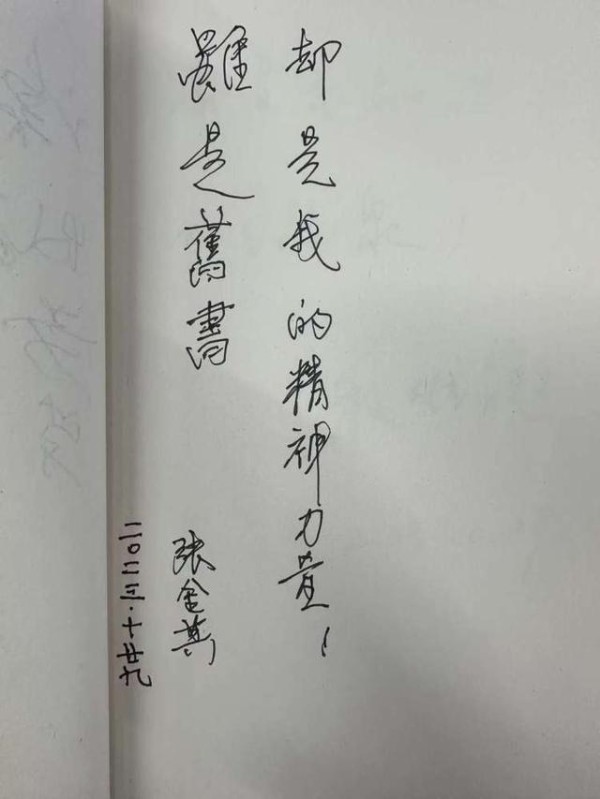 雖是舊書
却是我的精神力量！
张金
二〇二三·十廿九